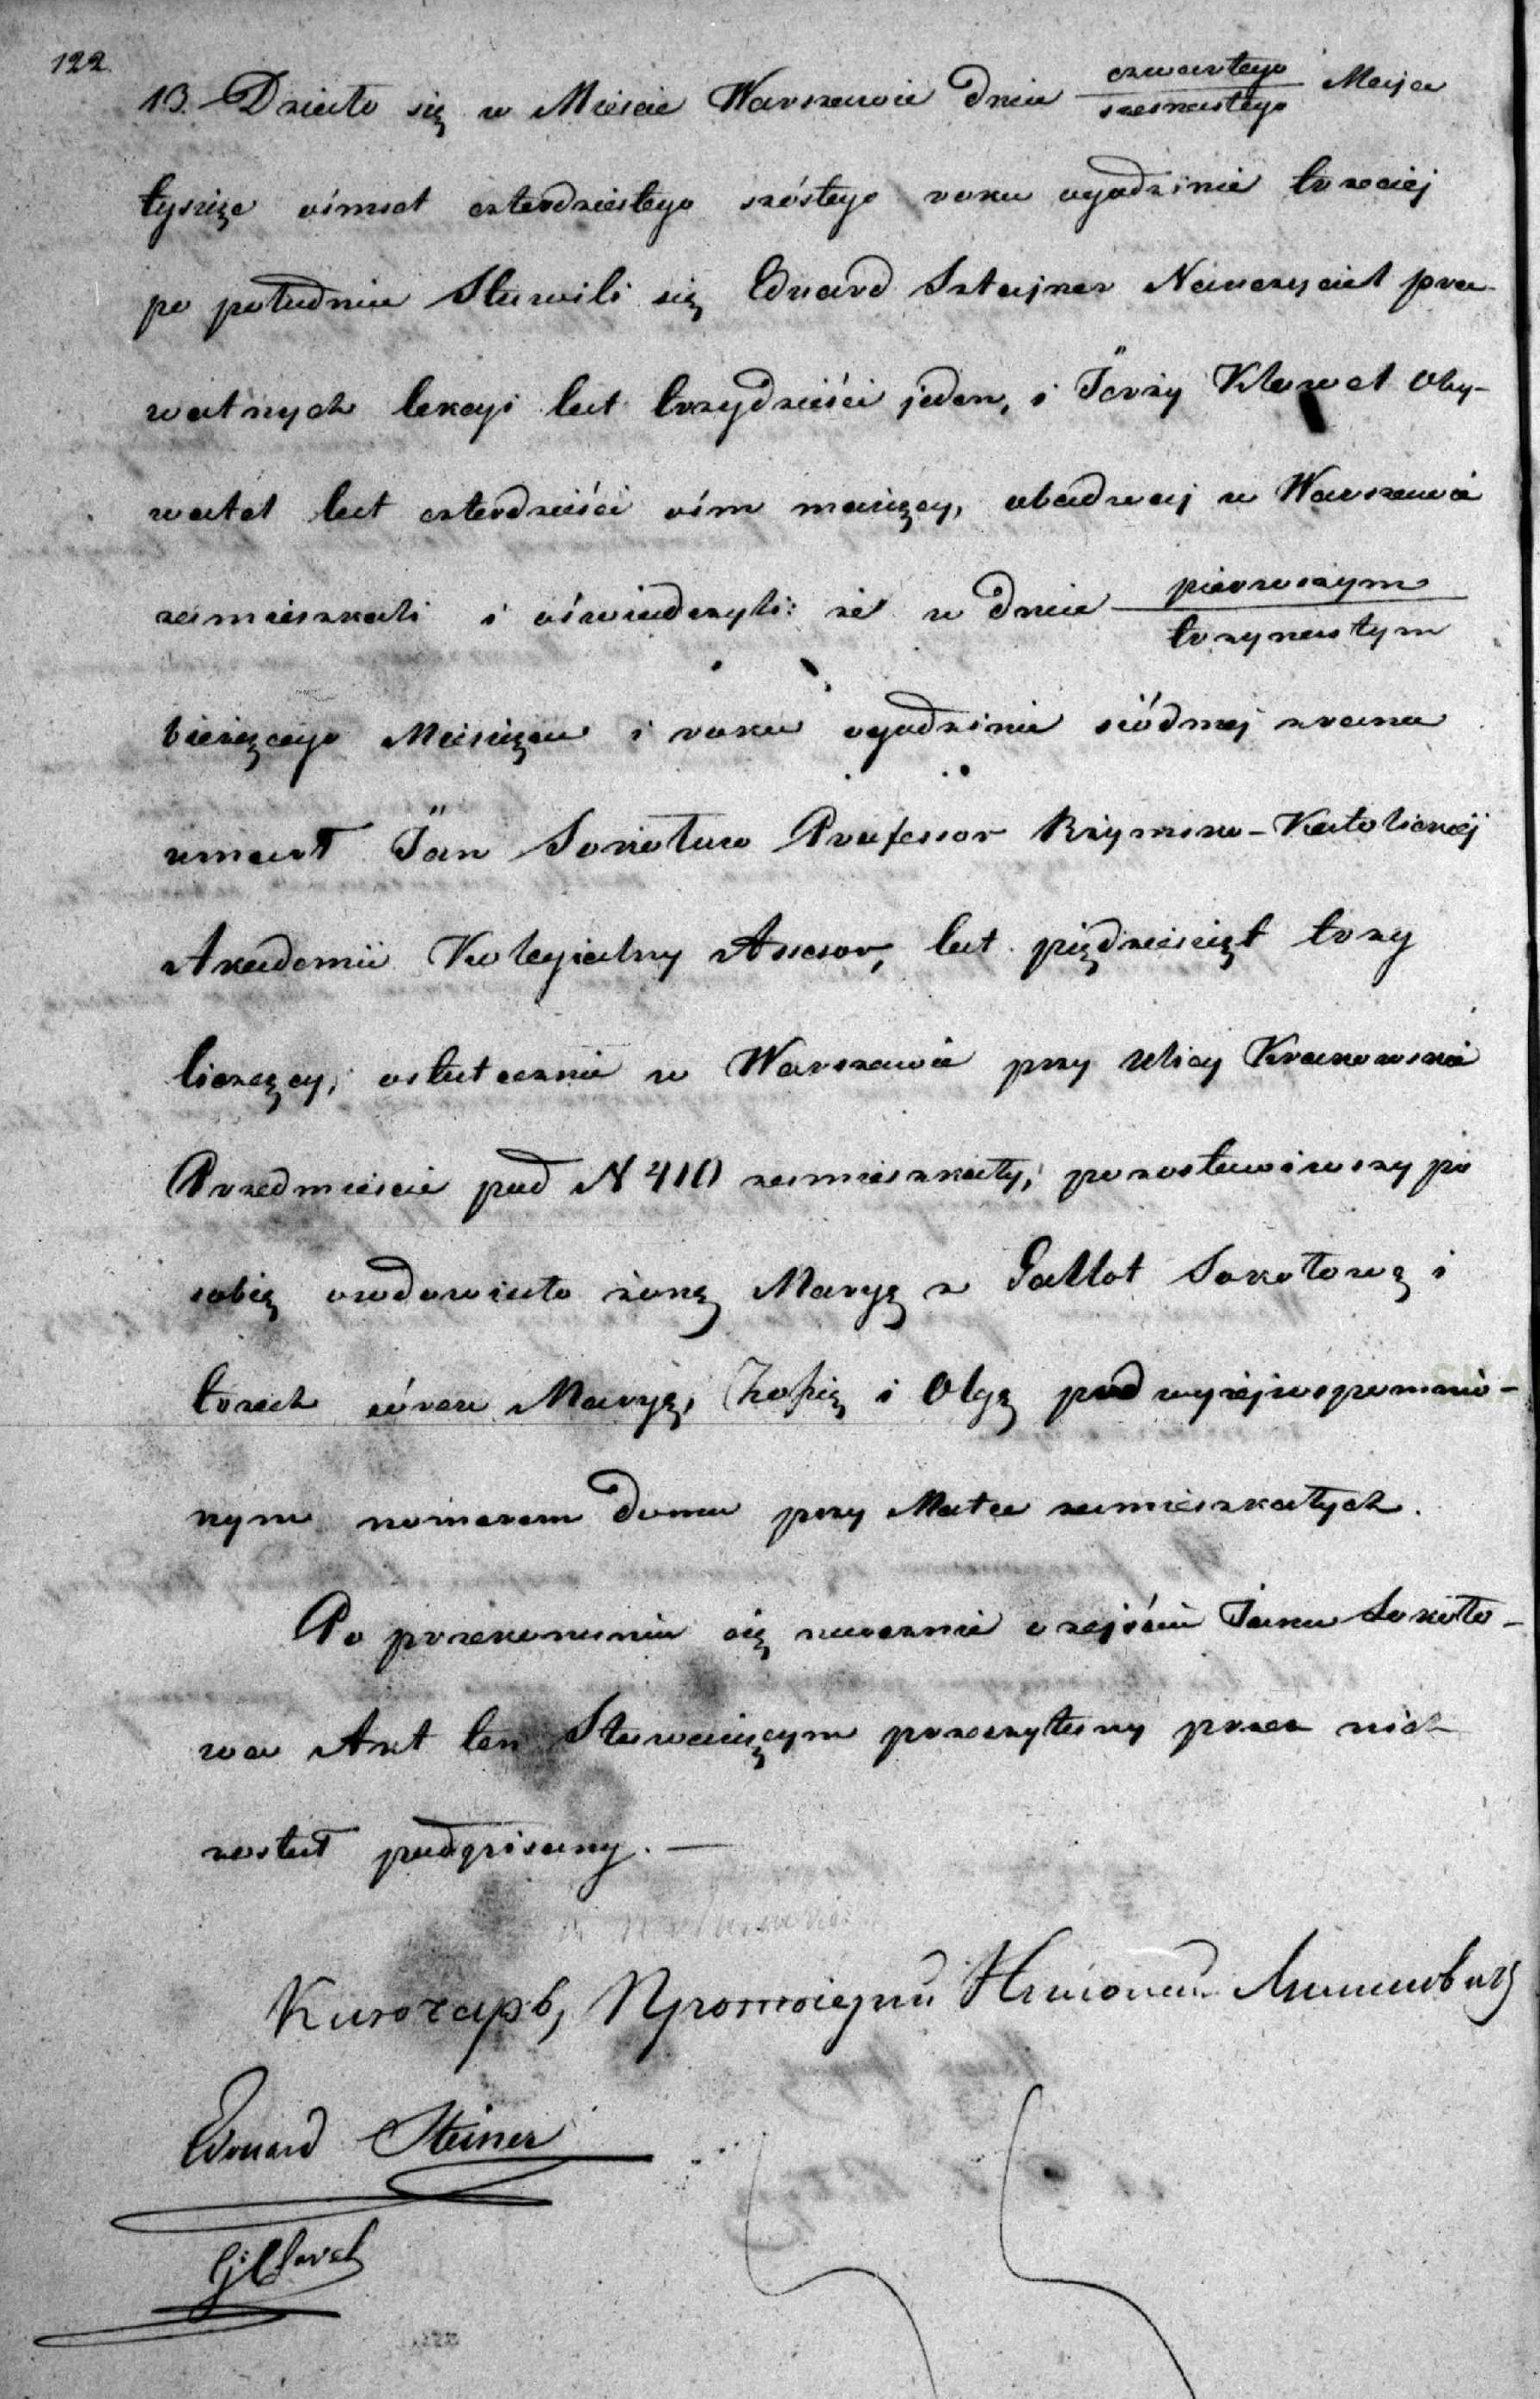 122.
13. Działo się w Mieście Warszawie dnia czwartego/szesnastego Maja
tysiąc ośmset czterdziestego szóstego roku ogodzinie trzeciej
po południu Stawili się Eduard Sztajner Nauczyciel pra-
watnych lekcyi lat trzydzieści jeden, i Jerży Klawet Oby-
watel lat czterdzieści ośm maiący, obadwaj w Warszawie
zamieszkali i oświadczyli: że w dniu pierwszym/trzynastym
bieżącego Miesiąca i roku ogodzinie siódmej zrana
umarł Jan Sokołow Professor Rzymsko-Katolickiej
Akademii Kolegialny Assesor, lat piędziesiąt trzy
liczący, ostatecznie w Warszawie przy Ulicy Krakowskie
Przedmieście pod N 410 zamieszkały; pozostawiwszy po
sobię owdowiała żonę Maryę z Gallot Sokołową i
trzech córek Maryę, Zofię i Olgę pod wyżejwspomnio-
nym numerem domu przy Matce zamieszkałych.
Po przekonaniu się naocznie o zejściu Jana Sokoło-
wa Akt ten Stawaiącym przeczytany przez nich
został podpisany. —
Ключарь, Протоіерей
Edouard Steiner
G: Clavel